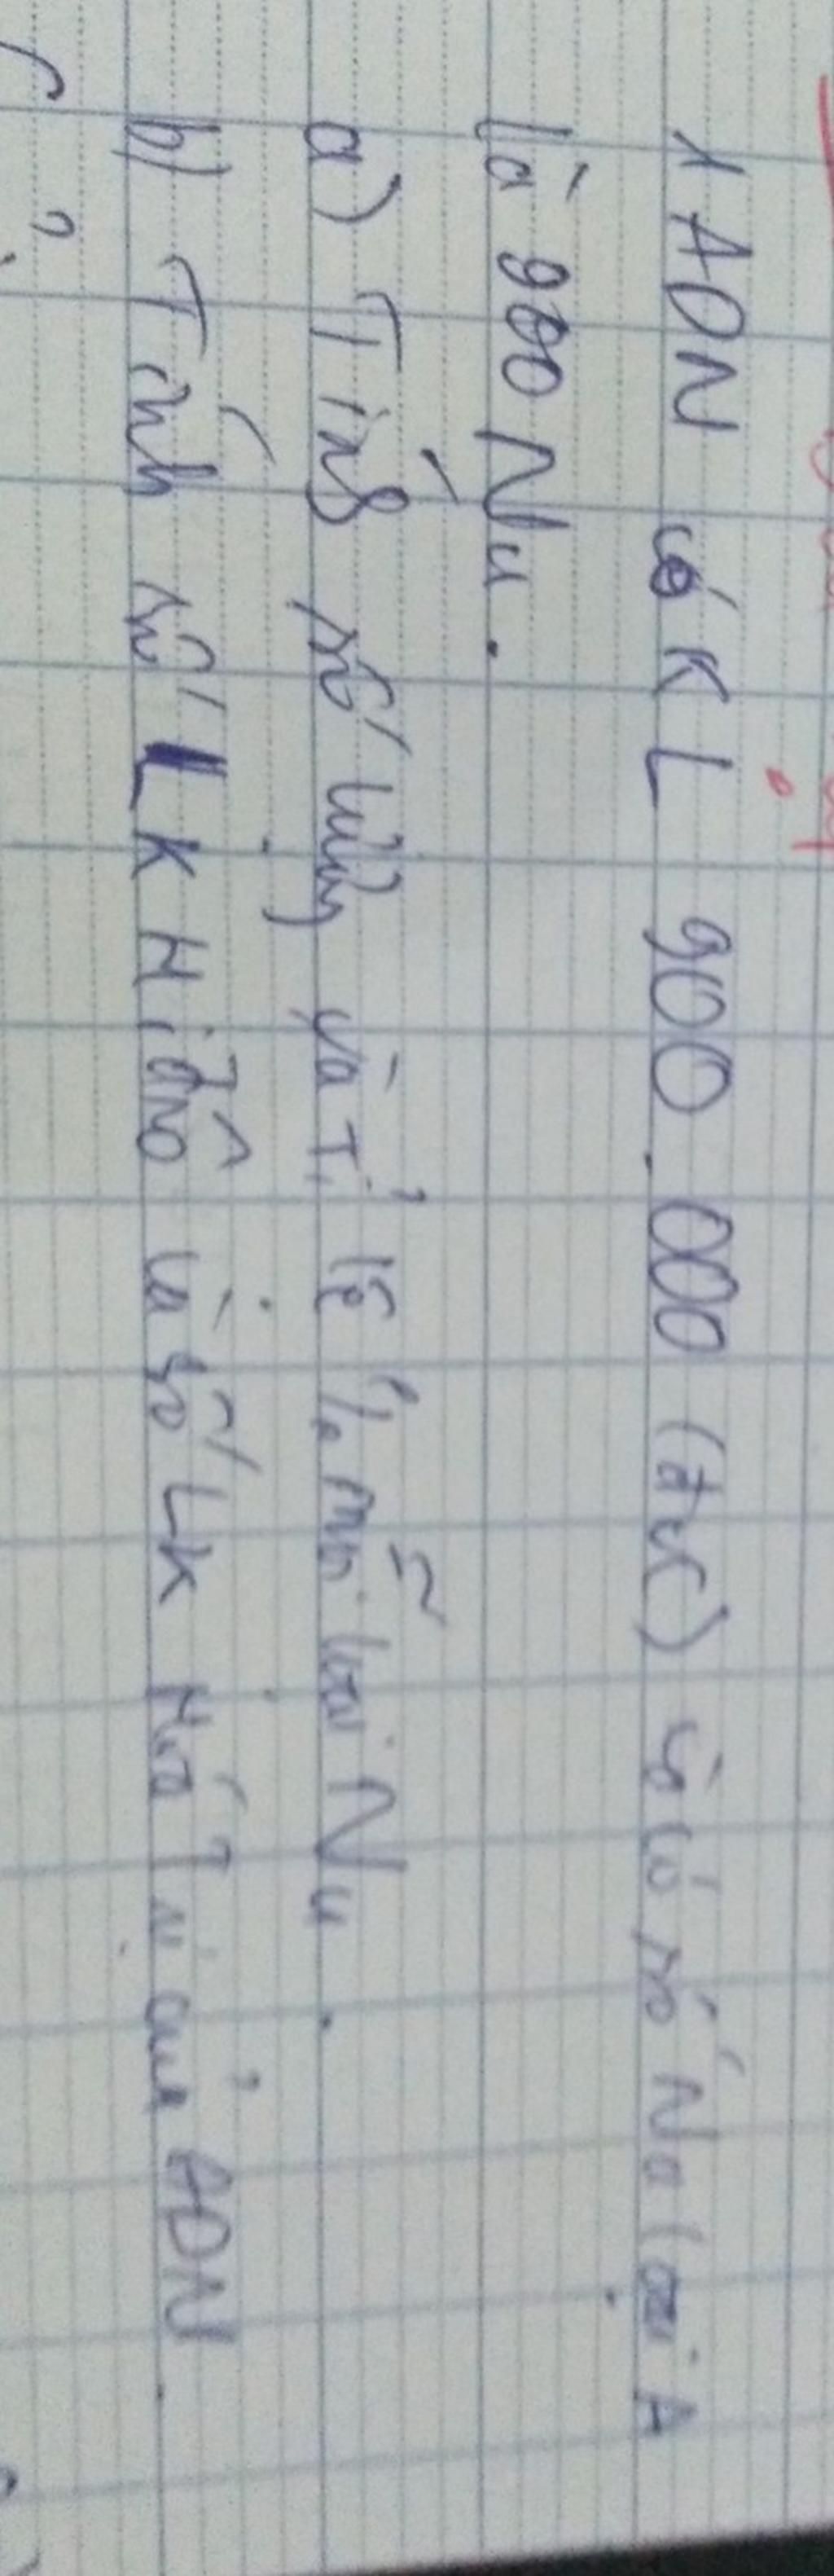 1 ADN có KL 900.000 (đvc) và có số Nu loại A
là 900 Nu.
a) Tính số lượng và Tỉ lệ % mỗi loại Nu.
b) Tính số LK Hiđrô và số LK Hoá Trị của ADN.